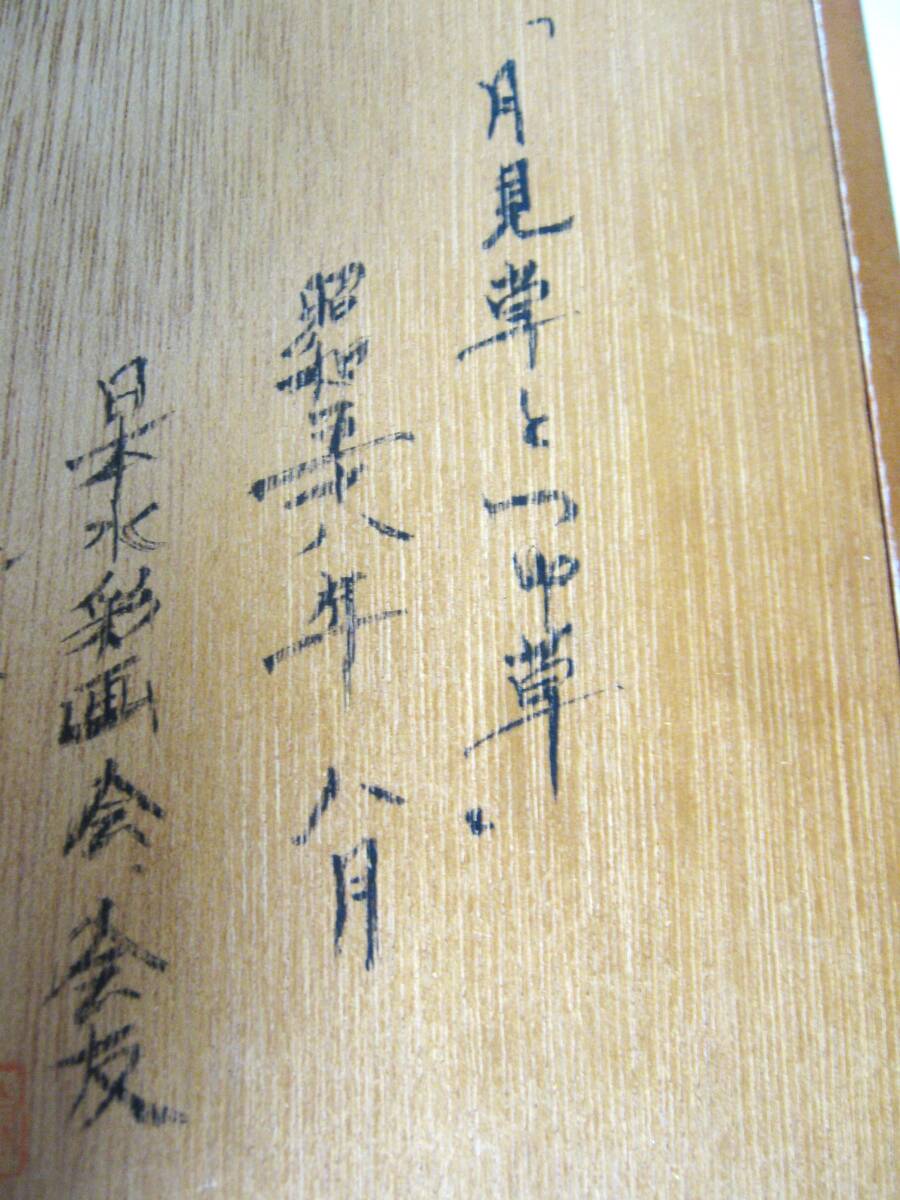 「月見草とつゆ草」
昭和五十八年 八月
日本水彩画会会友